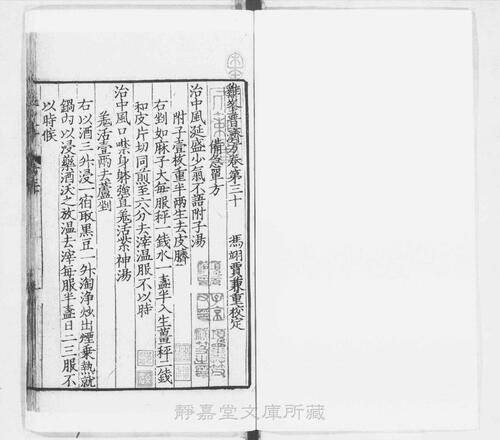 雞峯普濟方卷第三十
馮翊賈兼重校定
備急單方
治中風涎盛少氣不語附子湯
附子壹枚重半兩生去皮臍
右剉如麻子大每服秤一錢水一盞半入生薑秤二錢
和皮片切同煎至六分去滓溫服不以時
治中風口噤身躰強直羗活紫神湯
羗活壹兩去蘆剉
右以酒三升浸一宿取黒豆一升淘淨炒出煙乗熱就
鍋內以浸藥酒沃之放溫去滓每服半盞日二三服不
以時候
靜嘉堂文庫所藏